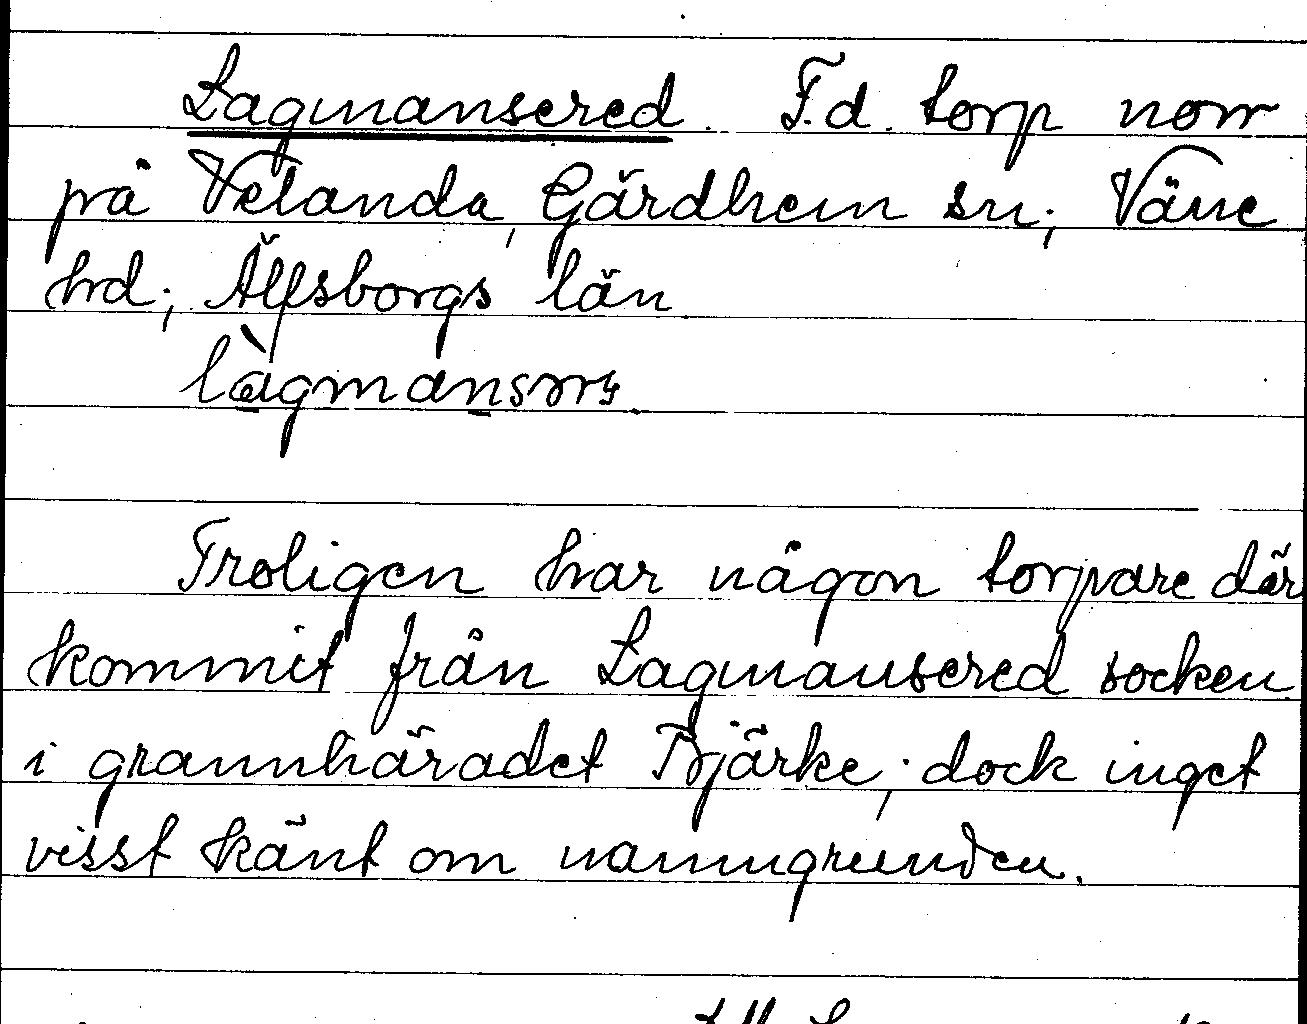 Lagmansered. F.d. torp norr
på Velanda, Gärdhem sn; Väne
hd; Älfsborgs län
Troligen har någon torpare där
kommit från Lagmansered socken
i grannhäradet Bjärke; dock inget
visst känt om namngrunden.